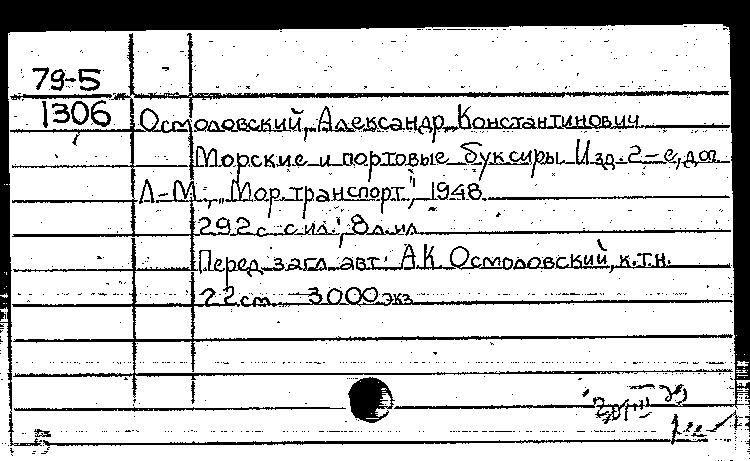 79-5
1306
Осмоловский, Александр Константинович
Морские и портовые буксиры Изд. 2-е, доп
Л-М., „Мор. транспорт", 1948
292 с. с ил.; 8 л. ил
Перед загл. авт: А.К. Осмоловский, к.т.н.
22 см 3000 экз
5